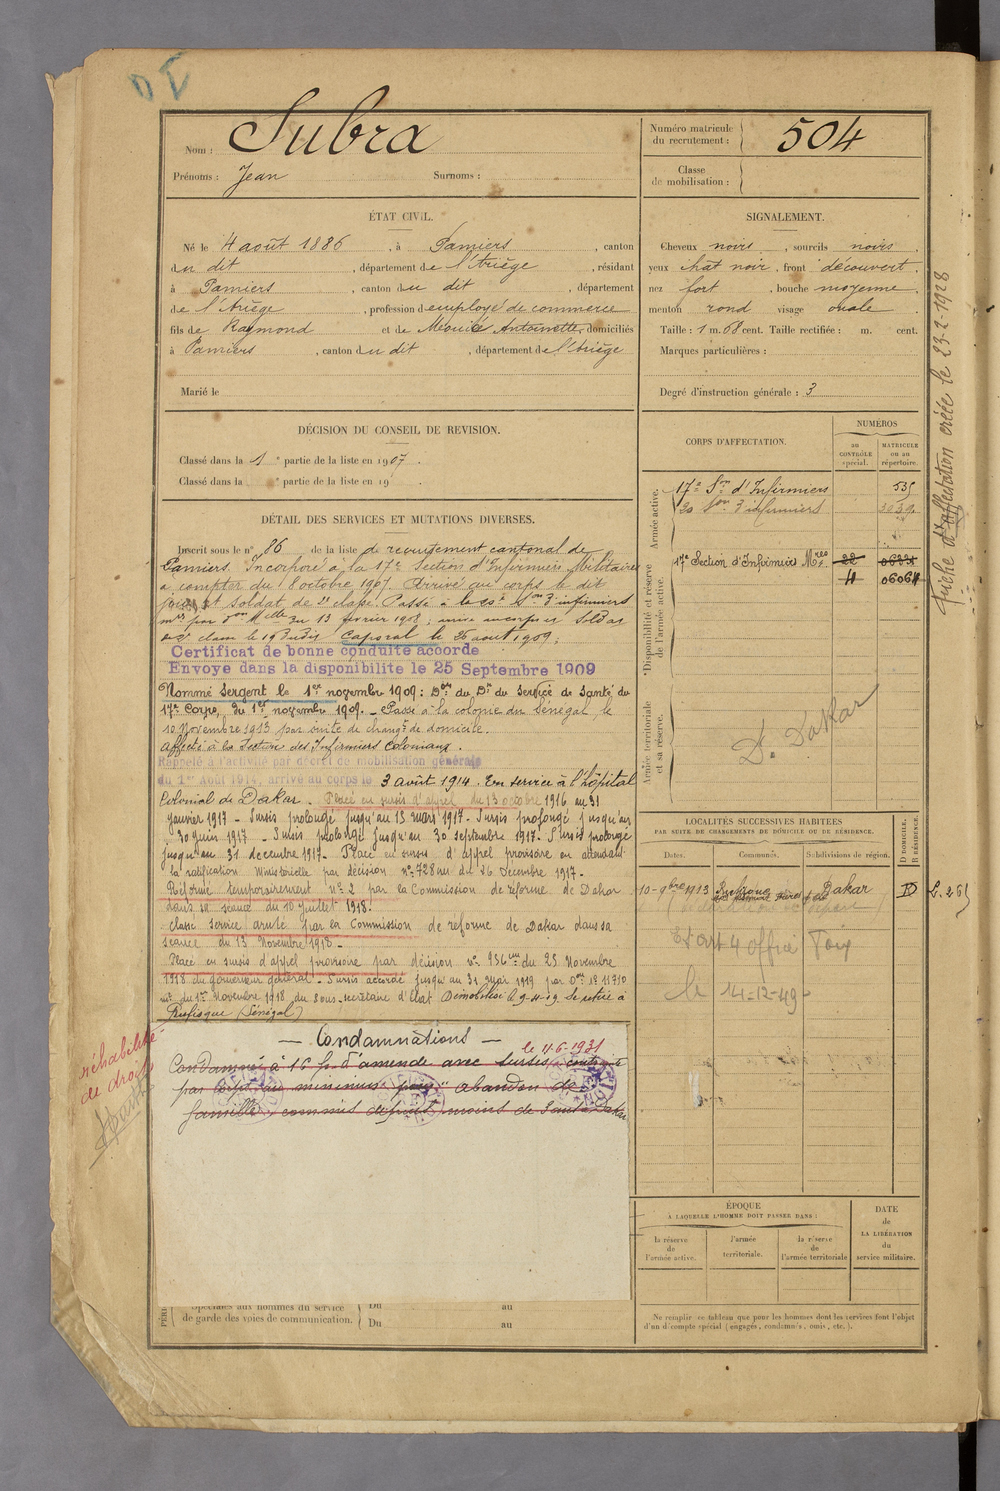 Nom : Subra
Prénoms : Jean Surnoms :
Numéro matricule du recrutement : 504
Classe de mobilisation :
ÉTAT CIVIL.
Né le 4 août 1886 , à Pamiers , canton
du dit , département de l'Ariège , résidant
à Pamiers , canton du dit , département
de l'Ariège , profession d employé de commerce
fils de Raymond et de Antoinette, domiciliés
à Pamiers , canton du dit , département de l'Ariège
Marié le
SIGNALEMENT.
Cheveux noirs , sourcils noirs .
yeux chat noir , front découvert .
nez fort , bouche moyenne
menton rond visage ovale
Taille : 1 m. 68 cent. Taille rectifiée : m. cent.
Marques particulières :
Degré d'instruction générale : 3
DÉCISION DU CONSEIL DE REVISION.
Classé dans la 1 e partie de la liste en 1907 .
Classé dans la e partie de la liste en 19
DÉTAIL DES SERVICES ET MUTATIONS DIVERSES.
Inscrit sous le n° 86 de la liste de recrutement cantonal de
Pamiers. Incorporé à la 17e Section d'Infirmiers Militaires
à compter du 8 octobre 1907. Arrivé au corps le dit
jour et soldat de 2e classe. Passé à la 20e Son d'infirmiers
du 13 février 1908 ;
le 19 dudit Caporal le 26 août 1909 ;
Certificat de bonne conduite accorde
Envoye dans la disponibilite le 25 Septembre 1909
Nommé Sergent le 1er novembre 1909 : Don du Dr du Service de Santé du
17e Corps, du 1er novembre 1909. _ Passé à la colonie du Sénégal, le
10 Novembre 1913 par suite de changt de domicile.
Affecté à la Section des Infirmiers Coloniaux .
Rappelé à l'activité par décret de mobilisation générale
du 1er Août 1914, arrivé au corps le 3 août 1914. En service à l'hôpital
Colonial de Dakar . Placé en sursis d'appel du 13 octobre 1916 au 31
janvier 1917 - Sursis prolongé jusqu'au 13 mars 1917 - Sursis prolongé jusqu'au
30 juin 1917 - Sursis prolongé jusqu'au 30 septembre 1917 - Sursis prorogé
jusqu'au 31 décembre 1917 - Placé en sursis d'appel provisoire en attendant
la ratification Ministérielle par décision n° 728 du 26 Décembre 1917 -
Réformé temporairement n° 2 par la Commission de réforme de Dakar
dans sa séance du 10 Juillet 1918.
classé service armé par la Commission de réforme de Dakar dans sa
séance du 13 Novembre 1918 -
Placé en sursis d'appel provisoire par décision n° 936 du 25 Novembre
1918 du gouverneur général - Sursis accordé jusqu'au 31 mai 1919 par
du 1er Novembre 1918 du Sous-Secrétaire d'Etat Démobilisé le 9-4-19 Se retire à
Rufisque (Sénégal)
— Condamnations —
le 11-6-1931
Condamné à 16 f. d'amende avec sursis, contrainte
par corps au minimum pour "abandon de
famille", commis depuis moins de 3 ans à Dakar
réhabilité
de droit
Spéciales aux hommes du service
de garde des voies de communication. Du au
Du au
CORPS D'AFFECTATION.
NUMÉROS
au CONTRÔLE spécial.
MATRICULE ou au répertoire.
Armée active.
17e Son d'Infirmiers 535
20 Son d'infirmiers
Disponibilité et réserve de l'armée active.
17e Section d'Infirmiers Mres 22
4 06064
Armée territoriale et sa réserve.
Dt Dakar
LOCALITÉS SUCCESSIVES HABITÉES
PAR SUITE DE CHANGEMENTS DE DOMICILE OU DE RÉSIDENCE.
Dates. Communes. Subdivisions de région. D DOMICILE. R RÉSIDENCE.
10-9bre 1913 Dakar D
Foix
le 14-12-49
ÉPOQUE
À LAQUELLE L'HOMME DOIT PASSER DANS :
la réserve de l'armée active.
l'armée territoriale.
la réserve de l'armée territoriale
DATE de LA LIBÉRATION du service militaire.
Ne remplir ce tableau que pour les hommes dont les services font l'objet
d'un décompte spécial (engagés, condamnés, omis, etc.).
Fiche d'affectation créée le 23-2-1928